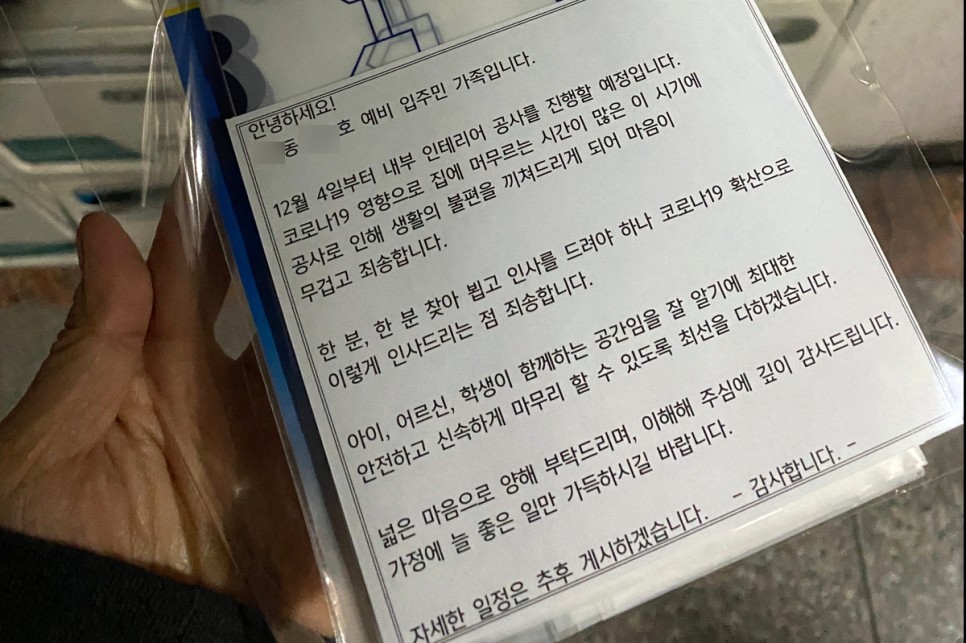 안녕하세요!
동 호 예비 입주민 가족입니다.
12월 4일부터 내부 인테리어 공사를 진행할 예정입니다.
코로나19 영향으로 집에 머무르는 시간이 많은 이 시기에
공사로 인해 생활의 불편을 끼쳐드리게 되어 마음이
무겁고 죄송합니다.
한 분, 한 분 찾아 뵙고 인사를 드려야 하나 코로나19 확산으로
이렇게 인사드리는 점 죄송합니다.
아이, 어르신, 학생이 함께하는 공간임을 잘 알기에 최대한
안전하고 신속하게 마무리 할 수 있도록 최선을 다하겠습니다.
넓은 마음으로 양해 부탁드리며, 이해해 주심에 깊이 감사드립니다.
가정에 늘 좋은 일만 가득하시길 바랍니다.
- 감사합니다. -
자세한 일정은 추후 게시하겠습니다.